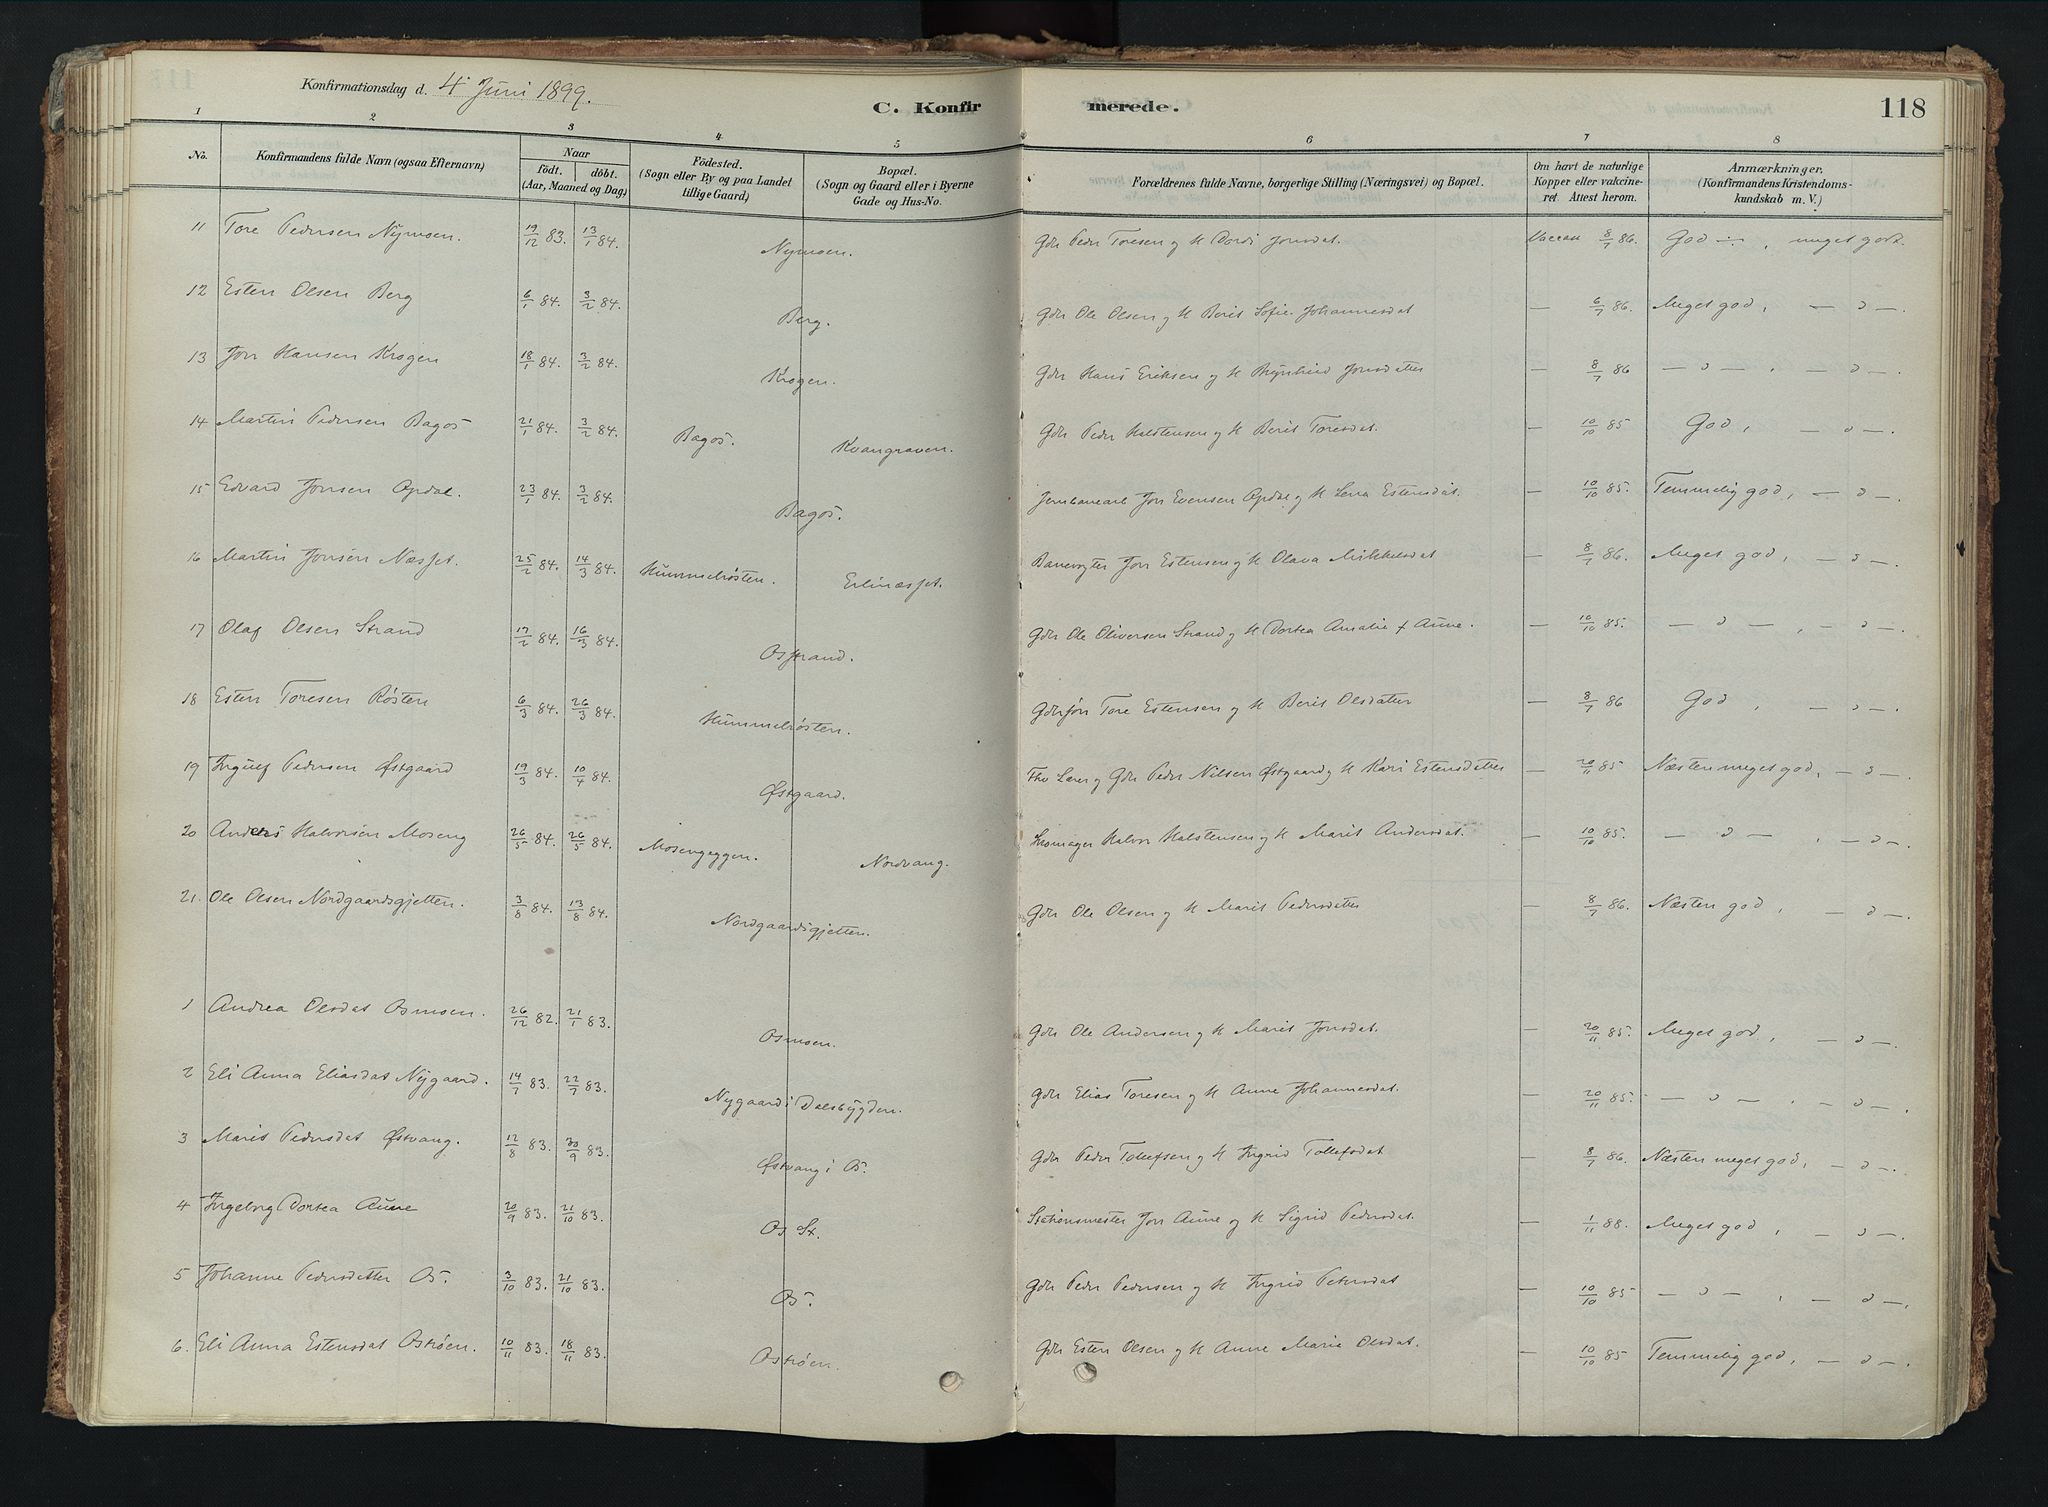 Konfirmationsdag d. 4 Juni 1899.
C. Konfirmerede.
118
1 2 3 4 5 6 7 8
No. Konfirmandens fulde Navn (ogsaa Efternavn) Naar födt. döbt. (Aar, Maaned og Dag) Födested. (Sogn eller By og paa Landet tillige Gaard) Bopæl. (Sogn og Gaard eller i Byerne Gade og Hus-No. Forældrenes fulde Navne, borgerlige Stilling (Næringsvei) og Bopæl. Om havt de naturlige Kopper eller vakcineret. Attest herom. Anmærkninger. (Konfirmandens Kristendomskundskab m. V.)
11 Tore Pedersen Nymoen. 19/12 83. 13/1 84. Nymoen. Gdr Peder Toresen og H Dordi Jonsdat. 8/7 86. God, meget godt.
12 Esten Olsen Berg 6/1 84. 3/2 84. Berg. Gdr Ole Olsen og H Berit Sofie Johannesdat — 6/7 86. Meget god, — " —.
13 Jon Hansen Krogen 18/1 84. 3/2 84. Krogen. Gdr Hans Eriksen og H Brynhild Jonsdatter — 8/7 86 — " —, — " —.
14 Martin Pedersen Bagos 21/1 84. 3/2 84. Bagos. Kvangraven. Gdr Peder Halstensen og H Berit Toresdat. — 10/10 85 God, — " —.
15 Edvard Jonsen Opdal. 23/1 84. 3/2 84. Bagos. Jernbanearb Jon Evensen Opdal og H Lena Estensdat. — 10/10 85. Temmelig god, — " —.
16 Martin Jonsen Næsset. 25/2 84. 14/3 84. Hummelrösten. Erlinæsset. Banevogter Jon Estensen og H Olava Mikkelsdat — 8/7 86. Meget god, — " —.
17 Olaf Olsen Strand 17/2 84. 16/3 84. Osstrand. Gdr Ole Oliversen Strand og H Dortea Amalie f Aune. — 10/10 85. — " —, — " —.
18 Esten Toresen Rösten 6/3 84. 26/3 84. Hummelrösten. Gdrsön Tore Estensen og H Berit Olsdatter — 8/7 86 God, — " —.
19 Ingulf Pedersen Østgaard 19/3 84. 10/4 84. Østgaard. Fhv Lærer og Gdr Peder Nilsen Østgaard og H Kari Estensdatter — 20/11 85 Næsten meget god, — " —.
20 Anders Halvorsen Moseng 26/5 84. 26/5 84. Mosengeggen. Nordvang. Skomager Halvor Halstensen og H Marit Andersdat. — 10/10 85. — " —, — " —.
21. Ole Olsen Nordgaardsgjetten. 3/8 84. 13/8 84. Nordgaardsgjetten. Gdr Ole Olsen og H Marit Pedersdatter — 8/7 86. Næsten god, — " —.
1 Andrea Olsdat Osmoen. 26/12 82. 21/1 83. Osmoen. Gdr Ole Andersen og H Marit Jonsdat. — 20/11 85. Meget god, — " —.
2 Eli Anna Eliasdat Nygaard. 14/7 83. 22/7 83. Nygaard i Dalsbygden. Gdr Elias Toresen og H Anne Johannesdat. — 20/11 85. — " —, — " —.
3 Marit Pedersdat Østvang. 12/8 83. 30/9 83. Østvang i Os. Gdr Peder Tollefsen og H Ingrid Tollefsdat — 8/7 86. Næsten meget god, — " —.
4 Ingeborg Dortea Aune 20/9 83. 21/10 83. Os St. Stationsmester Jon Aune og H Sigrid Pedersdat. — 1/11 88. Meget god, — " —.
5 Johanne Pedersdatter Os. 3/10 83. 21/10 83. Os. Gdr Peder Pedersen og H Ingrid Petersdat — 10/10 85 — " —, — " —.
6. Eli Anna Estensdat Oströen. 10/11 83. 18/11 83. Oströen. Gdr Esten Olsen og H Anne Marie Olsdat. — 10/10 85 Temmelig god, — " —.